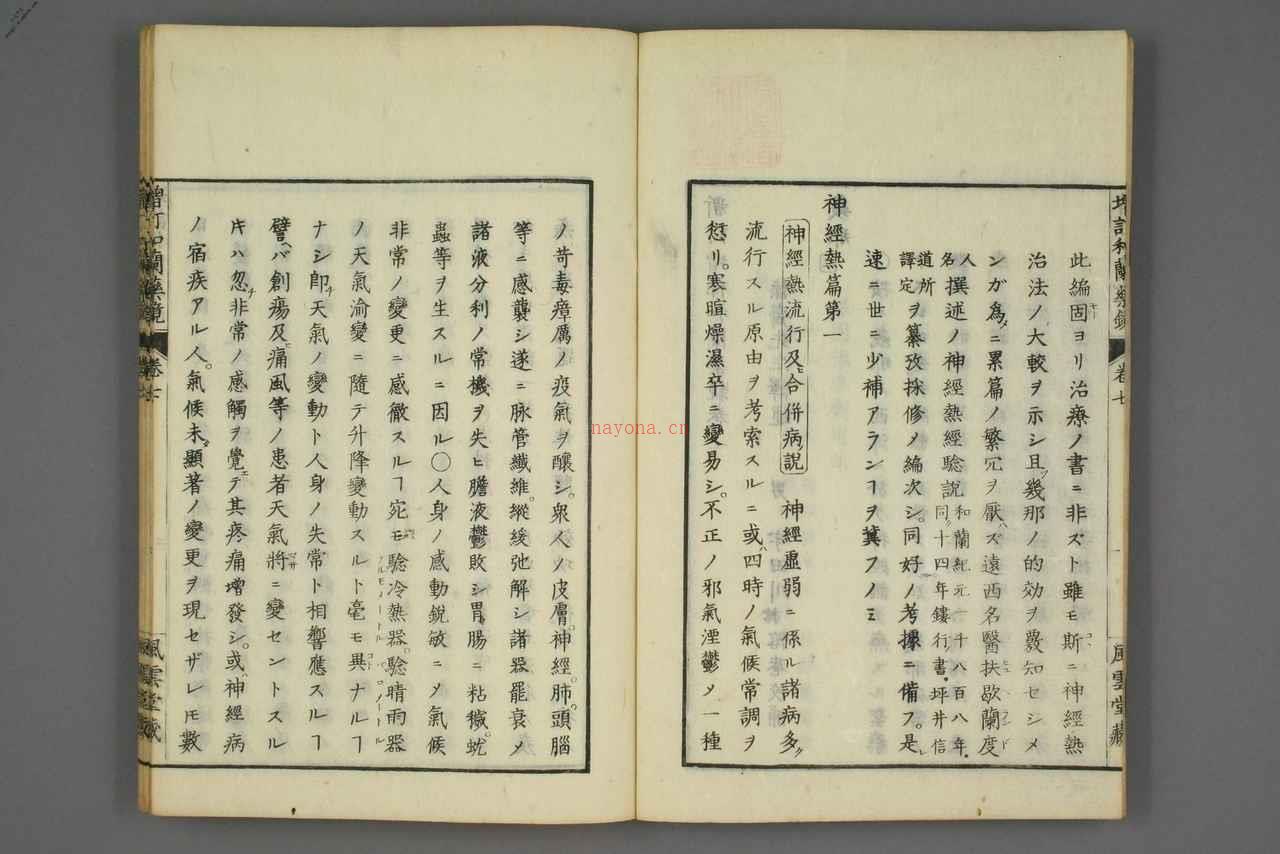 此編固ヨリ治療ノ書ニ非ズト雖モ斯ニ神經熱
治法ノ大較ヲ示シ且ツ幾那ノ的効ヲ覈知セシメ
ンガ為メニ累篇ノ繁冗ヲ厭ハズ遠西名醫扶歇蘭度
人名撰述ノ神經熱經驗説和蘭紀元一千八百八年
同十四年鏤行ノ書坪井信道所譯定ヲ纂攷採修乄編次シ同好ノ考據ニ備フ是レ
速ニ世ニ少補アランヿヲ冀フノミ
神經熱篇第一
神經熱流行及ヒ合併病ノ説 神經虚弱ニ係ル諸病多ク
流行スル原由ヲ考索スルニ或ハ四時ノ氣候常調ヲ
愆リ寒暄燥濕卒ニ變易シ不正ノ邪氣湮鬱乄一種
ノ苛毒瘴厲ノ疫氣ヲ釀シ衆人ノ皮膚神經肺頭腦
等ニ感襲シ遂ニ脉管纖維縱緩弛解シ諸器罷衰乄
諸液分利ノ常機ヲ失ヒ膽液鬱敗シ胃腸ニ粘穢蚘
蟲等ヲ生スルニ因ル〇人身ノ感動鋭敏ニ乄氣候
非常ノ變更ニ感徹スルヿ宛モ驗冷熱器驗晴雨器
ノ天氣渝變ニ隨テ升降變動スルト毫モ異ナルヿ
ナシ即チ天氣ノ變動ト人身ノ失常ト相響應スルヿ
譬バ創瘍及ヒ痛風等ノ患者天氣將ニ變セントスル
キハ忽チ非常ノ感觸ヲ覺エテ其疼痛增發シ或ハ神經病
ノ宿疾アル人氣候未タ顯著ノ變更ヲ現セザレモ數
增訂和蘭藥鏡
卷七
風雲堂藏
nayona.cn